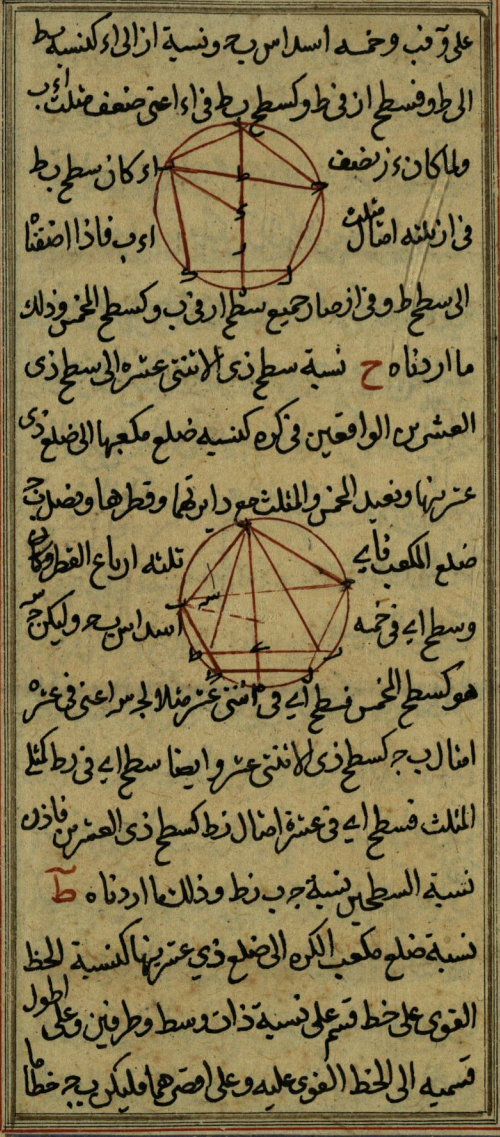 على و قب وخمسه اسداس ب ح ونسبة از الى اء كنسبة بط
الى ط و فسطح از فى ط و كسطح بط فى اء اعنى ضعف مثلث اءب
ولما كان ء ز نصف اء كان سطح بط
فى از ثلثه امثال مثلث اءب فاذا اضفنا
الى سطح ط و فى از صار جميع سطح از فى ب و كسطح المخمس وذلك
ما اردناه ح نسبة سطح ذى الاثنتى عشره الى سطح ذى
العشرين الواقعين فى كره كنسبه ضلع مكعبها الى ضلع ذى
عشرينها ونعيد المخمس والمثلث مع دايرتهما وقطرها ونصل
ضلع المكعب فاى ثلثه ارباع القطر وكان
وسطح اى فى خمسه اسداس ب ح وليكن
هو كسطح المخمس فسطح اى فى اثنتى عشر مثلا لـ اعنى فى عشره
امثال ب ج كسطح ذى الاثنتى عشر وايضا سطح اى فى زط كمثلى
المثلث فسطح اى فى عشرة امثال زط كسطح ذى العشرين فاذن
نسبة السطحين نسبة ج ب زط وذلك ما اردناه ط
نسبة ضلع مكعب الكره الى ضلع ذي عشرينها كنسبة الخط
القوى على خط قسم على نسبة ذات وسط وطرفين وعلى اطول
قسميه الى الخط القوى عليه وعلى اقصرهما فليكن ب ج خطا ما